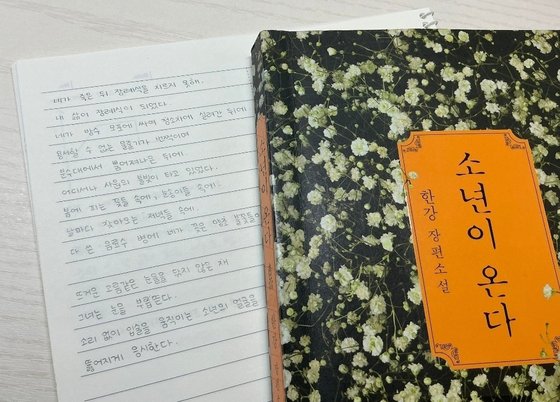 네가 죽은 뒤 장례식을 치르지 못해,
내 삶이 장례식이 되었다.
네가 방수 모포에 싸여 청소차에 실려간 뒤에
용서할 수 없는 물줄기가 번쩍이며
분수대에서 뿜어져나온 뒤에.
어디서나 사원의 불빛이 타고 있었다.
봄에 피는 꽃들 속에, 눈송이들 속에.
날마다 찾아오는 저녁들 속에.
다 쓴 음료수 병에 네가 꽂은 양초 불꽃들이
뜨거운 고름같은 눈물을 닦지 않은 채
그녀는 눈을 부릅뜬다.
소리 없이 입술을 움직이는 소년의 얼굴을
뚫어지게 응시한다.
소년이 온다
한강 장편소설
소년이 온다